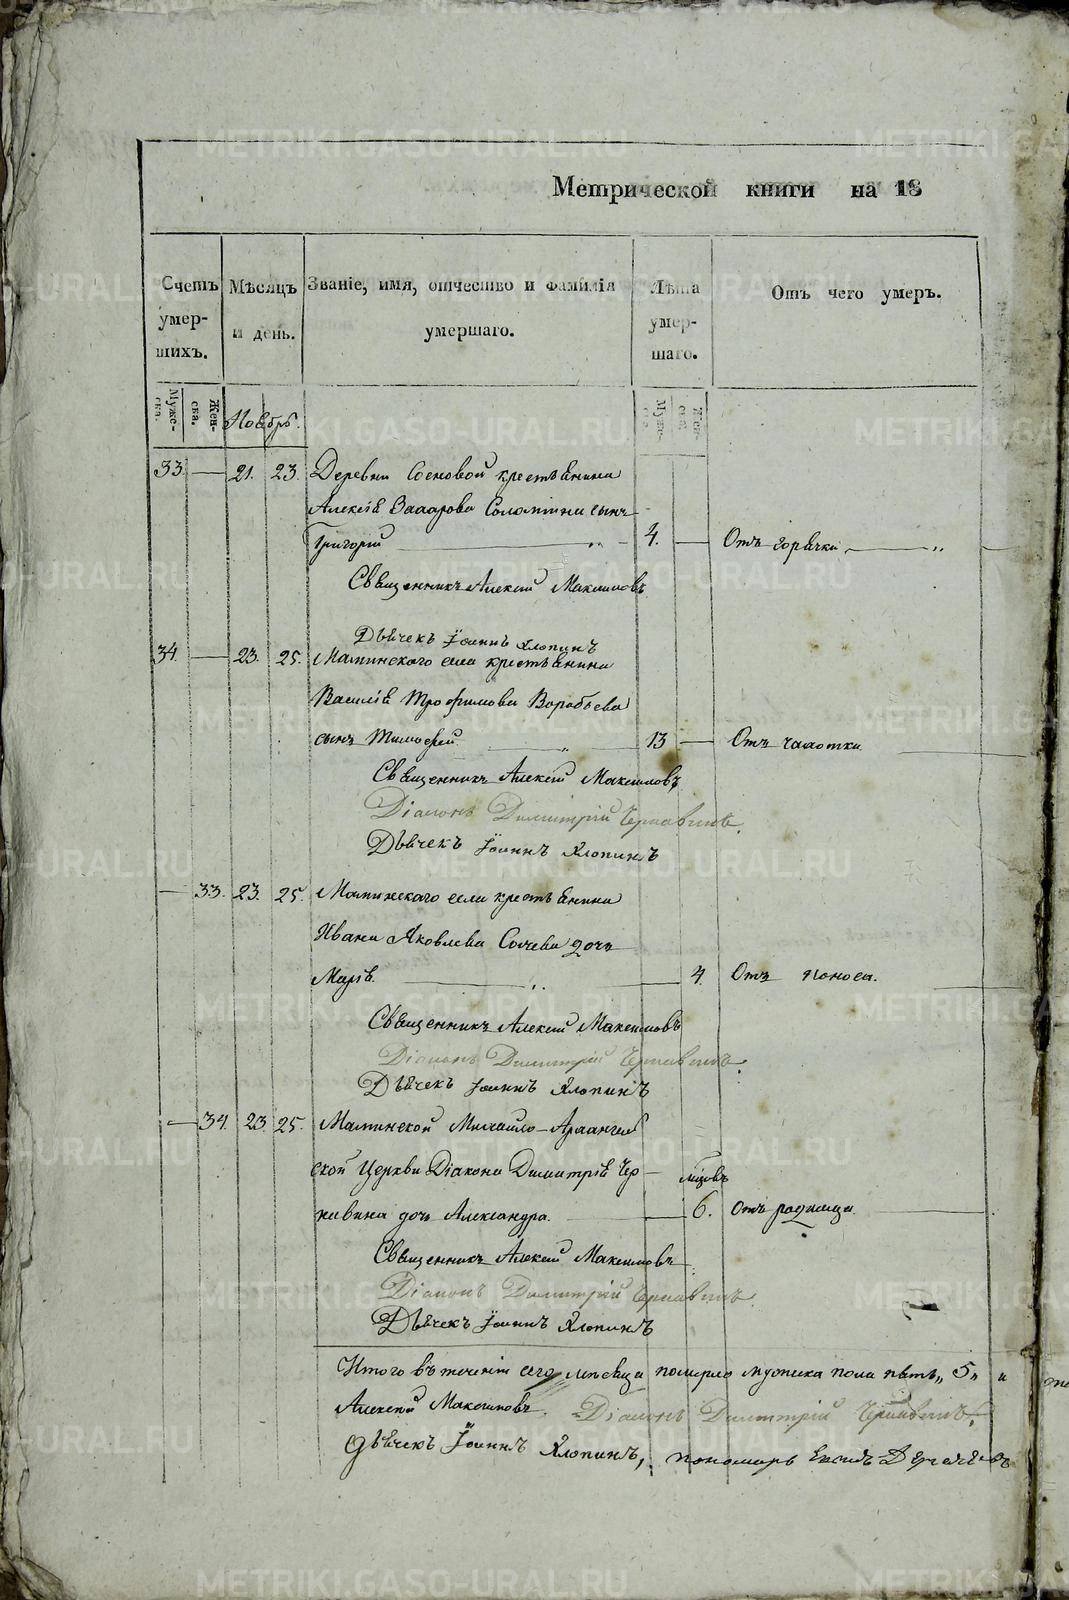 Метрической книги на 18
Счетъ умер- шихъ.
Мѣсяцъ и день.
Званіе, имя, отчество и фамилія умершаго.
Лѣта умер- шаго.
Отъ чего умеръ.
Мужес- ка. Жен- ска.
Ноябрь.
33. 21. 23. Деревни Сосновой крестьянина
Алексѣя Захарова Соломтина сынъ
Григорій 4. Отъ горячки
Священникъ Алексій Максимовъ
Дьячекъ Іоаннъ Хлопинъ
34. 23. 25. Маминскаго села крестьянина
Василія Трофимова Воробьева
сынъ Тимофей 13 Отъ чахотки
Священникъ Алексій Максимовъ
Діаконъ Димитрій Чернавинъ.
Дьячекъ Іоаннъ Хлопинъ
33. 23. 25. Маминскаго села крестьянина
Ивана Яковлева дочь
Марія. 4. Отъ поноса.
Священникъ Алексій Максимовъ
Діаконъ Димитрій Чернавинъ.
Дьячекъ Іоаннъ Хлопинъ
34. 23 25. Маминской Михайло-Архангель
ской Церкви Діакона Димитрія Чер
навина дочь Александра. 6. Отъ родимца
Священникъ Алексій Максимовъ
Діаконъ Димитрій Чернавинъ.
Дьячекъ Іоаннъ Хлопинъ
Итого въ теченіи сего мѣсяца померло мужеска пола пять „5„ и
Алексій Максимовъ. Діаконъ Димитрій Чернавинъ,
Дьячекъ Іоаннъ Хлопинъ, пономарь
METRIKI.GASO-URAL.RU